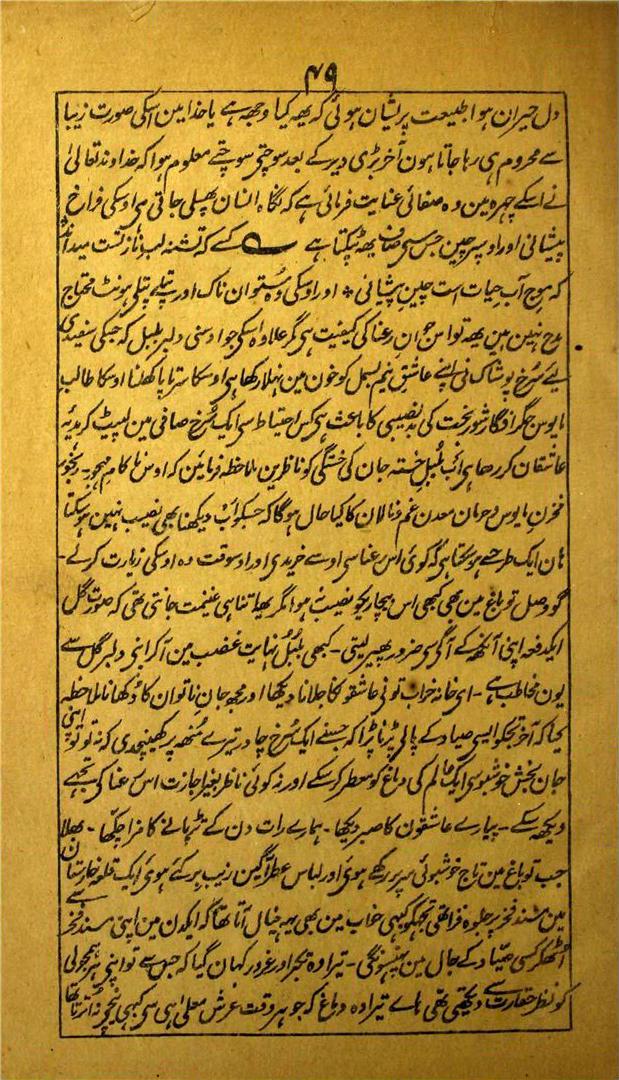 ۴۹
دل حیران ہوا طبیعت پریشان ہوئی کہ یہہ کیا وجھہ ہے یا خدا مین اسکی صورت زیبا
سے محروم ہی رہا جاتا ہون آخر بڑی دیر کے بعد سوچتی سوچتے معلوم ہوا کہ خداوند تعالیٰ
نے اسکے چہرہ مین وہ صفائی عنایت فرمائی ہے کہ نگاہ انسان پھسلی جاتی ہی اوسکی فراخ
پیشانی اور اوسپر چین جس سی صاف یھہ ٹپکتا ہے کے کہ تشنہ لب نازکت میدانند
کہ موج آب حیات است چین پیشانی * اور اوسکی وہ ستوان ناک اور پتلے پتلی ہونٹ محتاج
مدح نہین ہین یھہ تو اس جوان رعنا کی کیفیت ہی مگر علاوہ اسکی جو اوسنی دلبر بلبل کہ جسکی سفیدی
لیے سرخ پوشاک نی اپنے عاشق نیم بسمل کو خون مین نہلا رکھا ہی اوسکا سراپا کھلنا اوسکا طالب
مایوس جگر افگار شور بخت کی بد نصیبی کا باعث ہی کس احتیاط سی ایک سرخ صافی مین لپیٹ کر ہدیہ
عاشقان کر رھا ہی اب بلبل خستہ جان کی خستگی کو ناظرین ملاحظہ فرمائین کہ اوس ناکام مہجور رنجور
مخزن مایوس و حرمان معدن غم و نالان کا کیا حال ہوگا کہ جسکو اب دیکھنا بھی نصیب نہین ہو سکتا
ہان ایک طرح سے ہو سکتا ہی کہ کوئی اس رعنا سی اوسے خریدی اور اوسوقت وہ اوسکی زیارت کرلے۔
گو وصل تو باغ مین بھی کبھی اس بیچاریکو نصیب نہوا مگر یھہ اتنا ہی غنیمت جانتی تھی کہ صورت گل
ایکدفعہ اپنی آنکھہ کے آگی سی ضرور پھیر لیتی۔ کبھی بلبل نہایت غضب مین آکر اپنی دلبر گل سے
یون مخاطب ہے۔ ای خانہ خراب تونی عاشقونکا جلانا دیکھا اور مجھہ جان ناتوان کا دکھانا ملاحظہ
کیا کہ آخر تجکو ایسی صیاد کے پالی پڑنا پڑا کہ جسنے ایک سرخ چادر تیرے مونھہ پر کھینچدی کہ نہ تو تو اپنی
جان بخش خوشبو سی ایک عالم کی دماغ کو معطر کر سکے اور نہ کوئی ناظر بغیر اجازت اس رعنا کی تجھے
دیکھہ سکے۔ پیارے عاشقون کا صبر دیکھا۔ ہمارے رات دن کے تڑپانے کا مزا چکھا۔ بھلا
جب تو باغ مین تاج خوشبوئی سر پر رکھے ہوئی اور لباس عطر آگین زیب بر کئے ہوئی ایک قلعہ خارستان
مین مسند فخر پر جلوہ فرما تھی تجھکو کبھی خواب مین بھی یہہ خیال آتا تھا کہ ایکدن مین اپنی مسند فخر سے
اٹھکر کسی صیاد کے جال مین پھنسونگی۔ تیرا وہ تکبر اور غرور کہان گیا کہ جس سے تو اپنی ہر ہمجولی
کو نظر حقارت سے دیکھتی تھی ہاے تیرا وہ دماغ کہ جو ہر وقت عرش معلی ہی سی کبھی نیچی نہ اترتا تھا